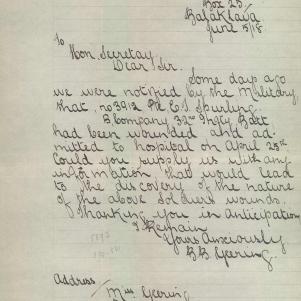 Box 25
Balaklava
June 5/18
To
Hon. Secretay.
Dear Sir.
Some day ago
we were notified by the Military
that, no 3912 Pte E J Spurling.
B company 32nd Batt
had been wounded and ad-
mitted to hospital on April 25th
Could you supply us with any
information that would lead
to the discovery of the nature
of the above Soldiers wounds.
Thanking you in anticipation
I Remain
Yours Anxiously
B B Geering.
Address
Geering